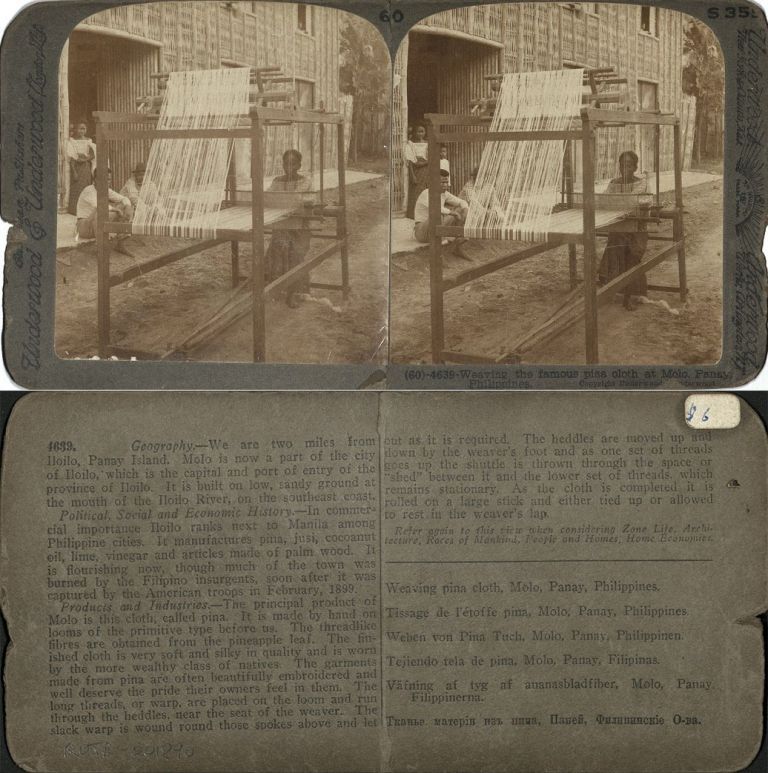 60
S 35
Underwood & Underwood
(60)-4639-Weaving the famous pina cloth at Molo, Panay,
Philippines.
$ 6
4639. Geography.—We are two miles from
Iloilo, Panay Island. Molo is now a part of the city
of Iloilo, which is the capital and port of entry of the
province of Iloilo. It is built on low, sandy ground at
the mouth of the Iloilo River, on the southeast coast.
Political, Social and Economic History.—In commer-
cial importance Iloilo ranks next to Manila among
Philippine cities. It manufactures pina, jusi, cocoanut
oil, lime, vinegar and articles made of palm wood. It
is flourishing now, though much of the town was
burned by the Filipino insurgents, soon after it was
captured by the American troops in February, 1899.
Products and Industries.—The principal product of
Molo is this cloth, called pina. It is made by hand on
looms of the primitive type before us. The threadlike
fibres are obtained from the pineapple leaf. The fin-
ished cloth is very soft and silky in quality and is worn
by the more wealthy class of natives. The garments
made from pina are often beautifully embroidered and
well deserve the pride their owners feel in them. The
long threads, or warp, are placed on the loom and run
through the heddles, near the seat of the weaver. The
slack warp is wound round those spokes above and let
out as it is required. The heddles are moved up and
down by the weaver's foot and as one set of threads
goes up the shuttle is thrown through the space or
"shed" between it and the lower set of threads, which
remains stationary. As the cloth is completed it is
rolled on a large stick and either tied up or allowed
to rest in the weaver's lap.
Refer again to this view when considering Zone Life, Archi-
tecture, Races of Mankind, People and Homes, Home Economics.
Weaving pina cloth, Molo, Panay, Philippines.
Tissage de l'étoffe pina, Molo, Panay, Philippines.
Weben von Pina Tuch, Molo, Panay, Philippinen.
Tejiendo tela de pina, Molo, Panay, Filipinas.
Väfning af tyg af ananasbladfiber, Molo, Panay,
Filippinerna.
Тканье матеріи изъ пина, Паней, Филипинскіе О-ва.